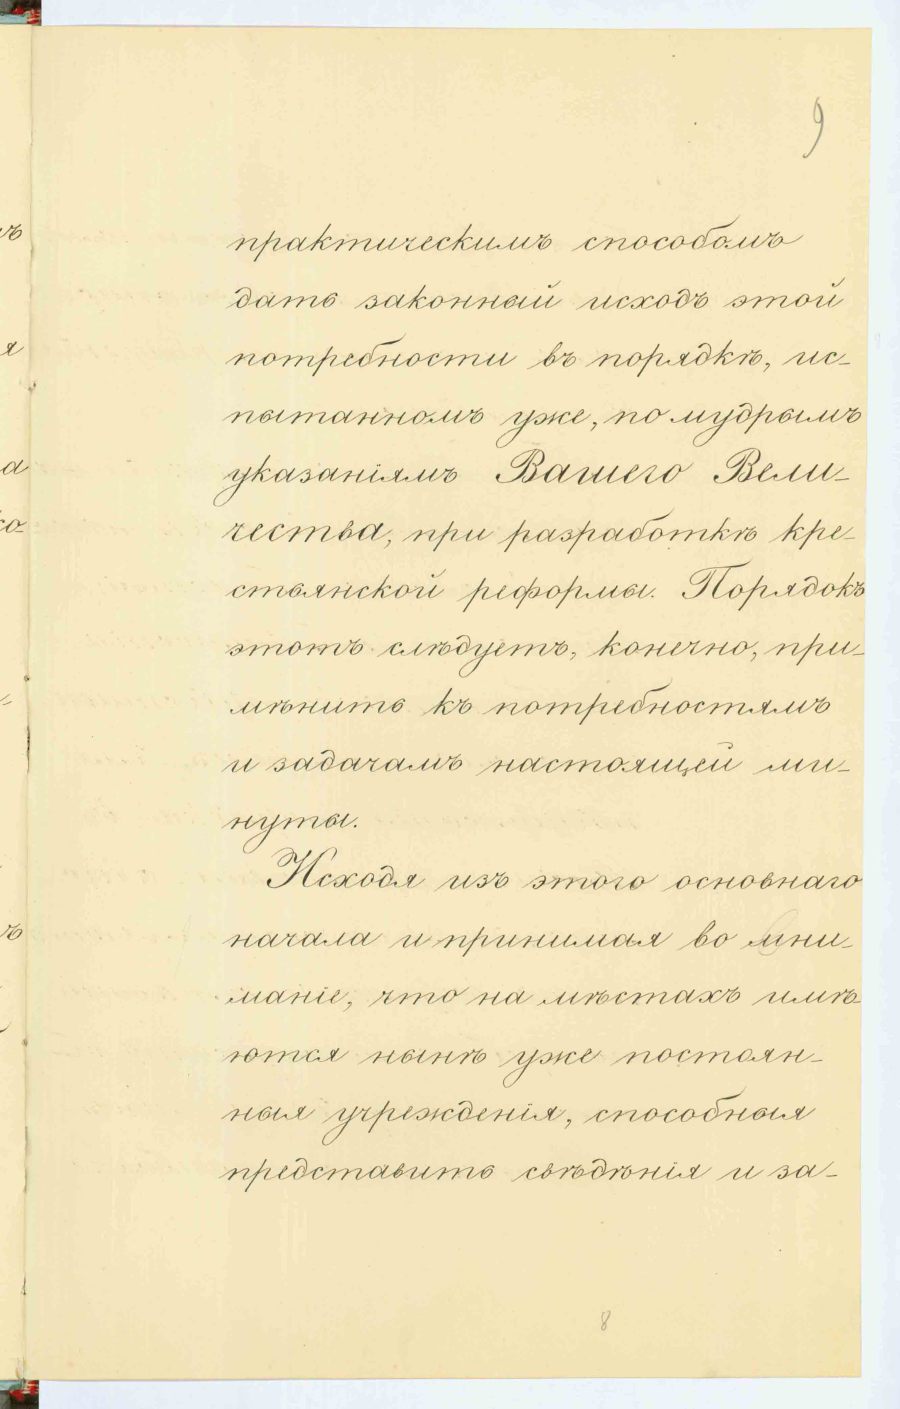 9
практическимъ способомъ
дать законный исходъ этой
потребности въ порядкѣ, ис-
пытанномъ уже, по мудрымъ
указаніямъ Вашего Вели-
чества, при разработкѣ кре-
стьянской реформы. Порядокъ
этотъ слѣдуетъ, конечно, при-
мѣнить къ потребностямъ
и задачамъ настоящей ми-
нуты.
Исходя изъ этого основнаго
начала и принимая во вни-
маніе, что на мѣстахъ имѣ
ются нынѣ уже постоян-
ныя учрежденія, способныя
представить свѣдѣнія и за-
8